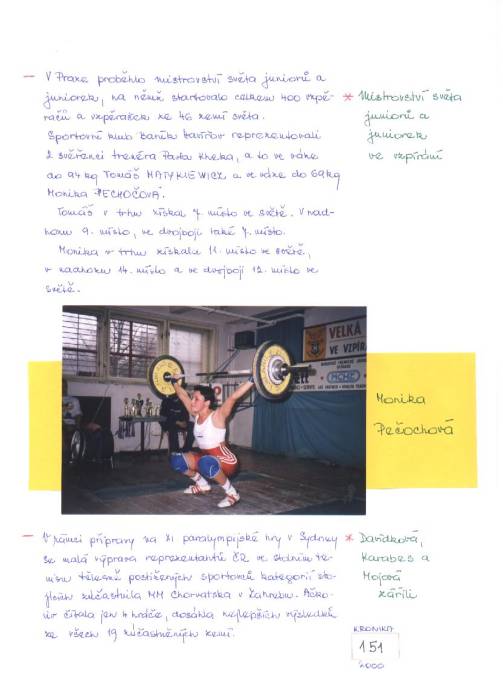 – V Praze proběhlo mistrovství světa juniorů a
juniorek, na němž startovalo celkem 400 vzpě-
račů a vzpěraček ze 46 zemí světa.
Sportovní klub Baník Havířov reprezentovali
2 svěřenci trenéra Pavla Kheka, a to ve váze
do 94 kg Tomáš MATYKIEWICZ a ve váze do 69 kg
Monika PECHOČOVÁ.
Tomáš v trhu získal 7. místo ve světě. V nad-
hozu 9. místo, ve dvojboji také 7. místo.
Monika v trhu získala 11. místo ve světě,
v nadhozu 14. místo a ve dvojboji 12. místo ve
světě.
* Mistrovství světa
juniorů a
juniorek
ve vzpírání
VELKÁ
VE VZPÍR
Monika
Pečochová
– V rámci přípravy na XI paralympijské hry v Sydney
se malá výprava reprezentantů ČR ve stolním te-
nisu tělesně postižených sportovců kategorií sto-
jících zúčastnila MM Chorvatska v Zahrebu. Ačko-
liv čítala jen 4 hráče, dosáhla nejlepších výsledků
ze všech 19 zúčastněných zemí.
* Davídková,
Karabes a
Mojová
zářili
KRONIKA
151
2000